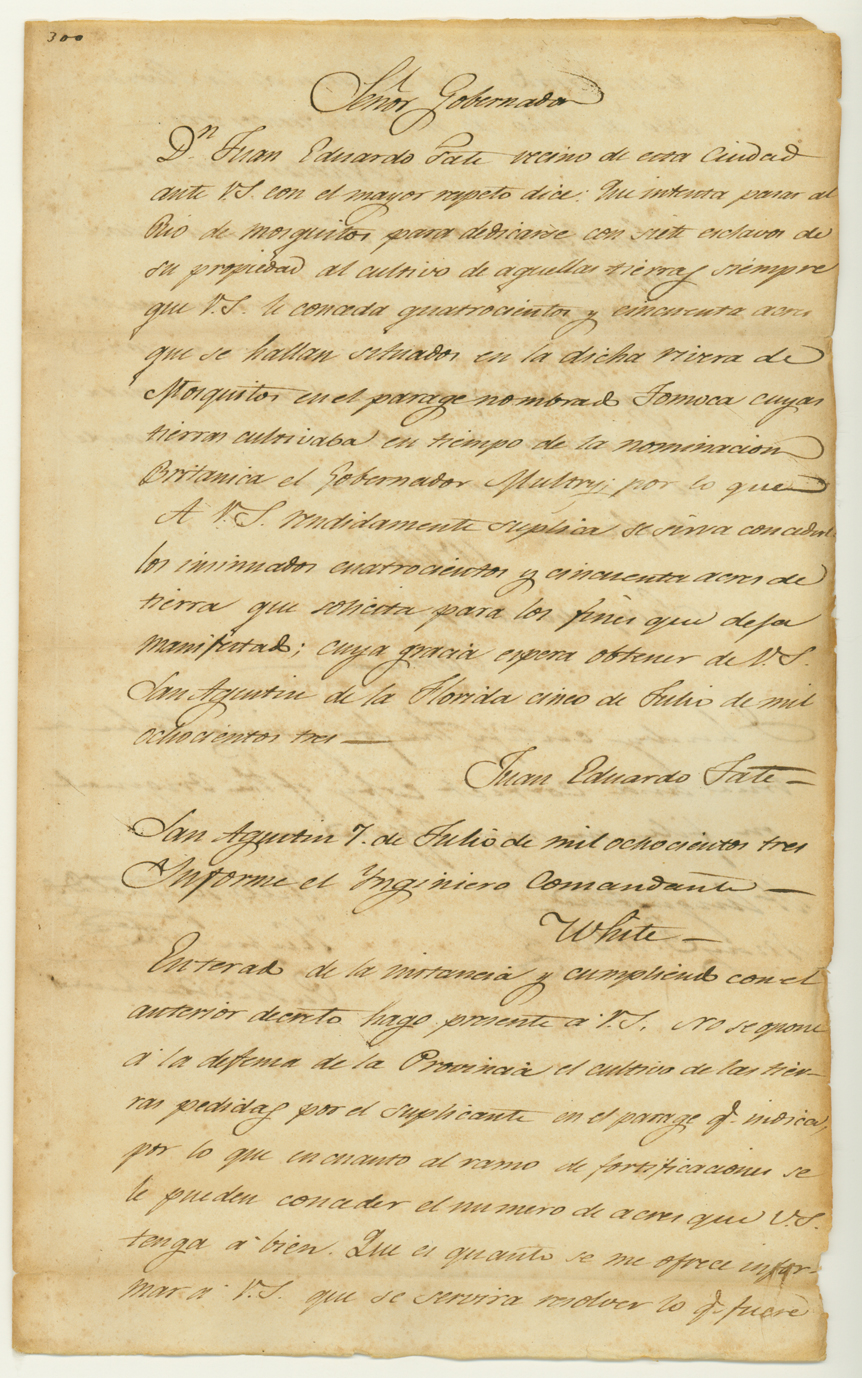 300
Señor Gobernador
Dn. Juan Eduardo Tate vecino de esta Ciudad
ante V.S. con el mayor respeto dice: Que intenta pasar al
Rio de Mosquitos para dedicarse con siete esclavos de
su propiedad al cultivo de aquellas tierras siempre
que V.S. le conceda quatrocientos y cincuenta acres
que se hallan situados en la dicha rivera de
Mosquitos en el parage nombrado Tomoca cuyas
tierras cultivaba en tiempo de la nominacion
Britanica el Gobernador Multry; por lo que
A V.S. rendidamente suplica se sirva concederle
los insinuados cuatrocientos y cincuenta acres de
tierra que solicita para los fines que deja
manifestado; cuya gracia espera obtener de V.S.
San Agustin de la Florida cinco de Julio de mil
ochocientos tres —
Juan Eduardo Tate —
San Agustin 7. de Julio de mil ochocientos tres
Informe el Yngeniero Comandante —
White —
Enterado de la instancia y cumpliendo con el
anterior decreto hago presente á V.S. No se opone
á la defensa de la Provincia el cultivo de las tier-
ras pedidas por el suplicante en el parage q.e indica,
por lo que en cuanto al ramo de fortificaciones se
le pueden conceder el numero de acres que V.S.
tenga á bien. Que es quanto se me ofrece infor-
mar á V.S. que se servira resolver lo q.e fuere